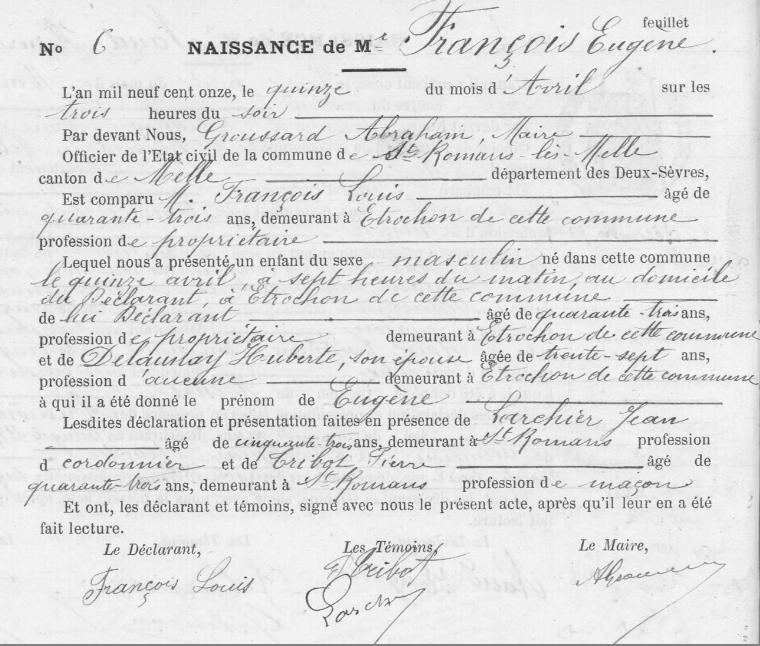 feuillet
No 6 NAISSANCE de Mr François Eugène.
L'an mil neuf cent onze, le quinze du mois d'Avril sur les
trois heures du soir
Par devant Nous, Groussard Abraham, Maire
Officier de l'Etat civil de la commune de St Romans-lès-Melle
canton de Melle département des Deux-Sèvres,
Est comparu M. François Louis âgé de
quarante-trois ans, demeurant à Etrochon de cette commune
profession de propriétaire
Lequel nous a présenté un enfant du sexe masculin né dans cette commune
le quinze avril, à sept heures du matin, au domicile
du Déclarant, à Etrochon de cette commune
de lui Déclarant âgé de quarante-trois ans,
profession de propriétaire demeurant à Etrochon de cette commune
et de Delaunay Huberte, son épouse âgée de trente-sept ans,
profession d'aucune demeurant à Etrochon de cette commune
à qui il a été donné le prénom de Eugène
Lesdites déclaration et présentation faites en présence de Larchier Jean
âgé de cinquante-trois ans, demeurant à St Romans profession
d cordonnier et de Tribot Pierre âgé de
quarante-trois ans, demeurant à St Romans profession de maçon
Et ont, les déclarant et témoins, signé avec nous le présent acte, après qu'il leur en a été
fait lecture.
Le Déclarant, Les Témoins, Le Maire,
François Louis Tribot